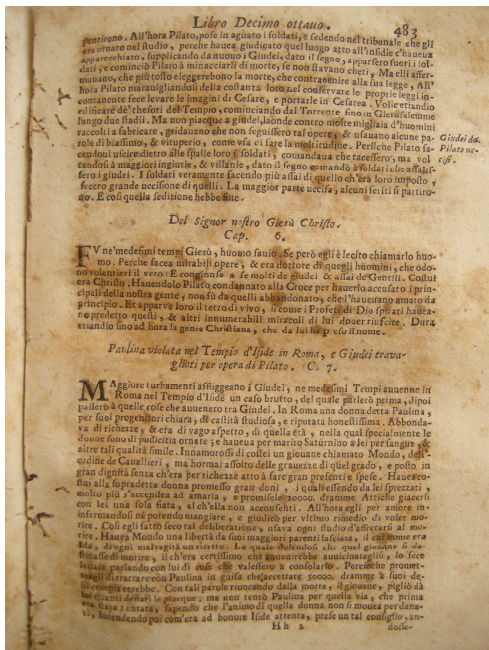 Libro Decimo ottauo. 483
pentirono. All'hora Pilato, pose in aguato i soldati, e sedendo nel tribunale che gli
era ornato nel studio, perche hauea giudicato quel luogo atto all'insidie c'haueua
apparecchiato, supplicando da nuouo i Giudei, dato il segno, apparsero fuori i sol-
dati, e cominciò Pilato à minacciarli di morte, se non stauano cheti, Ma elli affer-
mauano, che più tosto eleggerebono la morte, che contrauenire alla sua legge, All'
hora Pilato marauigliandosi della costanza loro nel conseruare le proprie leggi in-
contanente fece leuare le imagini di Cesare, e portarle in Cesarea. Volle etiandio
edificare de' thesori del Tempio, cominciando dal Torrente sino in Gierusalemme
lungo due stadii. Ma non piacque a giudei, laonde contra molte migliaia d'huomini
raccolti a fabricare, gridauano che non seguissero tal opere, & usauano alcune pa-
role di biassimo, & vituperio, come vsa di fare la moltitudine. Persiche Pilato fa-
cendoui uscire dietro alle spalle loro i soldati, comandaua che tacessero, ma vol
tandosi à maggiori ingiurie, & villanie, dato il segno comandò à soldati che assalis-
sero i giudei. I soldati veramente facendo più assai di quello ch'era loro imposto,
fecero grande uccisione di quelli. La maggior parte uccisa, alcuni feriti si partiro-
no. E così quella seditione hebbe fine.
Giudei da
Pilato uc-
cisi.
Del Signor nostro Giesù Christo.
Cap. 6.
FV ne' medesimi tempi Giesù, huomo sauio. Se però egli è lecito chiamarlo huo-
mo. Perche facea mirabili opere, & era dottore di quegli huomini, che odo-
no volentieri il vero: E congiunse a se molti de giudei & assai de Gentili. Costui
era Christo. Hauendolo Pilato condannato alla Croce per hauerlo accusato i prin-
cipali della nostra gente, non fù da quelli abbandonato, che l'haueuano amato da
principio. Et apparue loro il terzo dì viuo, si come i Profeti di Dio spirati haueua-
no predetto questi, & altri innumerabili miracoli di lui douer riuscire. Dura
etiandio sino ad hora la gente Christiana, che da lui hà preso il nome.
Paulina violata nel Tempio d'Iside in Roma, e Giudei traua-
gliati per opera di Pilato. C. 7.
MAggiore turbamenti affliggeano i Giudei, ne medesimi Tempi auuenne in
Roma nel Tempio d'Iside un caso brutto, del quale parlerò prima, dipoi
passerò à quelle cose che auuenero tra Giudei. In Roma una donna detta Paulina,
per suoi progenitori chiara, di castità studiosa, e riputata honestissima. Abbonda-
va di richezze, & era di vago aspetto, di quella età, nella qual specialmente le
donne sono di pudicitia ornate; e haueua per marito Saturnino à lei per sangue, &
altre tali qualità simile. Innamorossi di costei un giouane chiamato Mondo, dell'
ordine de Cauallieri, ma hormai assolto delle grauezze di quel grado, e posto in
gran dignità senza ch'era per richezze atto à fare gran presenti e spese. Hauea co-
stui alla sopradetta donna promesso gran doni, i quali essendo da lei sprezzati,
molto più s'accendea ad amarla, e promisele 20000. dramme Attiche giacersi
con lei una sola fiata, al ch'ella non acconsentì. All'hora egli per amore in-
fermandosi nè potendo mangiare, e giudicò per vltimo rimedio di voler mo-
rire. Così egli fatto seco tal deliberatione, usava ogni studio d'affretarsi al mo-
rire. Hauea Mondo una libertà da suoi maggiori parenti lasciata, il cui nome era
Ida, di ogni maluagità un ricetto. La quale dolendosi che quel giouane si de-
stinasse di morire, il ch'era certissimo che auuenirebbe auuicinatogli, lo fece
leuare parlando con lui di cose che valessero a consolarlo. Percioche promet-
tendogli di trattare con Paulina in guisa che accettate 50000. dramme à suoi de-
si compiacerebbe. Con tali parole riuocando dalla morte, il giouane, pigliò da
lui quanti denari le piacque; ma non tentò Paulina per quella via, che prima
era stata tentata, sapendo che l'animo di quella donna non si mouea per dana-
ri, Intendendo poi com'era ad honore Iside attenta, prese un tal consiglio, an-
Hh 2 dosse-